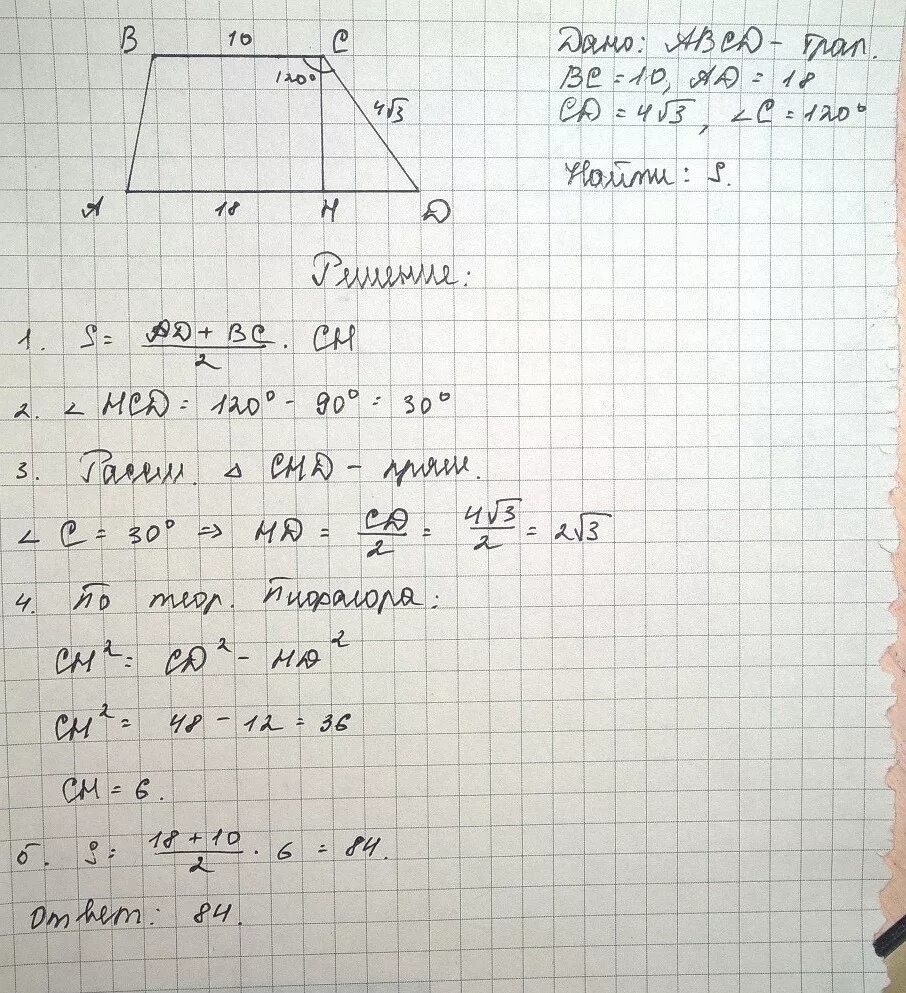 B 10 C
120°
4√3
A 18 H D
Дано: ABCD – трап.
BC = 10, AD = 18
CD = 4√3, ∠C = 120°
Найти: S.
Решение:
1. S = (AD + BC)/2 · CH
2. ∠HCD = 120° - 90° = 30°
3. Рассм. △ CHD – прям.
∠C = 30° ⇒ HD = CD/2 = 4√3/2 = 2√3
4. По теор. Пифагора:
CH² = CD² - HD²
CH² = 48 - 12 = 36
CH = 6.
5. S = (18 + 10)/2 · 6 = 84.
Ответ: 84.